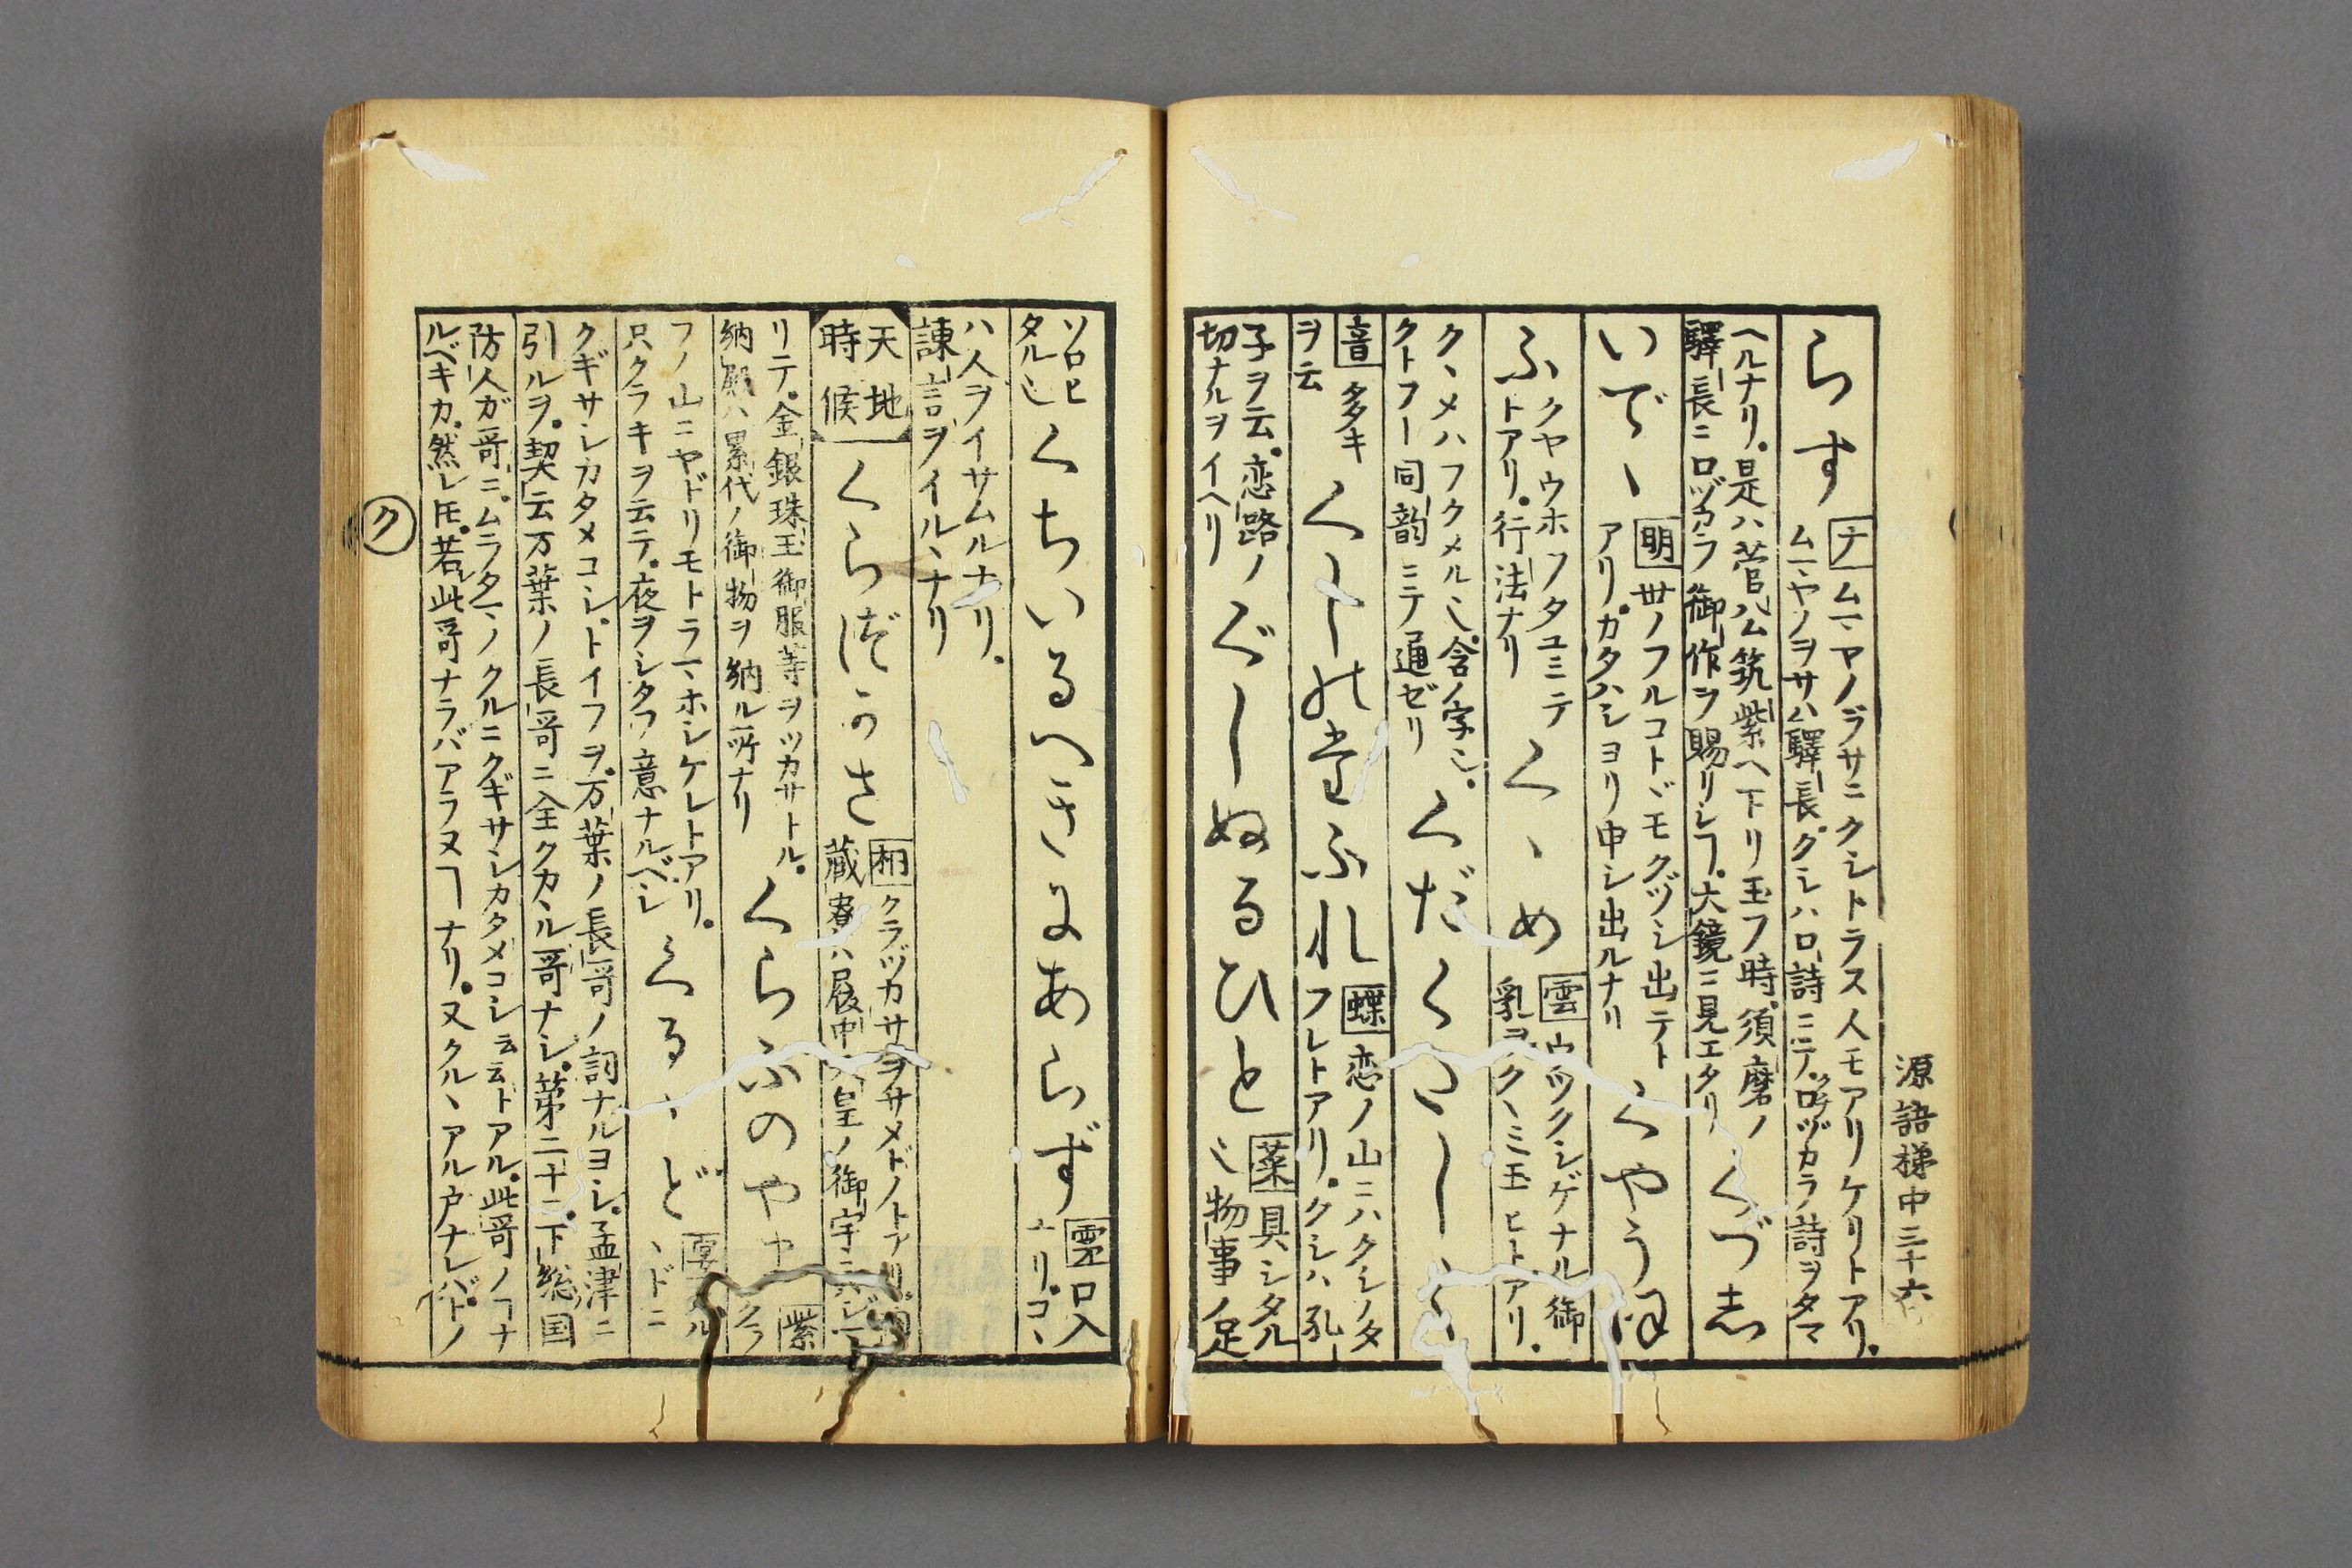 源語梯中三十六
らす ナ ムマヤノヲサニクシトラス人モアリケリトアリ。
ムマヤノヲサハ驛長。クシハ口詩ニテ。口ヅカラノ詩ヲタマ
ヘルナリ。是ハ菅公筑紫ヘ下リ玉フ時。須磨ノ
驛長ニ口ヅカラ御作ヲ賜リシヿ。大鏡ニ見エタリ くづし
いでゝ 明 世ノフルコトヾモクヅシ出テト
アリ。カタハシヨリ申シ出ルナリ くやうほ
ふ クヤウホフタユミテ
トアリ。行法ナリ くゝめ 雲 ウツクシゲナル御
乳ヲクヽミ玉ヒトアリ。
クヽメハフクメル也。含ノ字也。
クトフト同韵ニテ通ゼリ くだくだしゝ
音 多キ
ヲ云 くしの
ふれ 蝶 恋ノ山ニハクシノタ
フレトアリ。クシハ孔
子ヲ云。恋路ノ
切ナルヲイヘリ ぐしぬるひと 葉 具シタル
也物事ノ足
ソロヒ
タル也 くちいるへきにあらず 霊 口入
ユリ。コヽ
ハ人ヲイサムルナリ。
諌言ヲイルヽナリ
天地
時候 くらづかさ 桐 クラヅカサヲサメドノトアリ。
藏寮ハ
皇ノ御宇
リテ。金銀珠玉御服等ヲツカサトル。
納殿ハ累代ノ御物ヲ納ル所ナリ くらふのやま 紫 クラ
フノ山ニヤドリモトラマホシケレトアリ。
只クラキヲ云テ。夜ヲシタフ意ナルベシ くるゝど
ヽドニ
クギサシカタメコシ。トイフヲ。万葉ノ長哥ノ詞ナルヨシ。孟津ニ
引ルヲ。契云万葉ノ長哥ニ全クカヽル哥ナシ。第二十二。下総国
防人ガ哥ニ。ムラタマノクルニクギサシカタメコシ云云トアル。此哥ノヿナ
ルベキカ。然レ𪜈。若此哥ナラバアラヌヿナリ。又クルヽアル戸ナレバ。トノ
ク